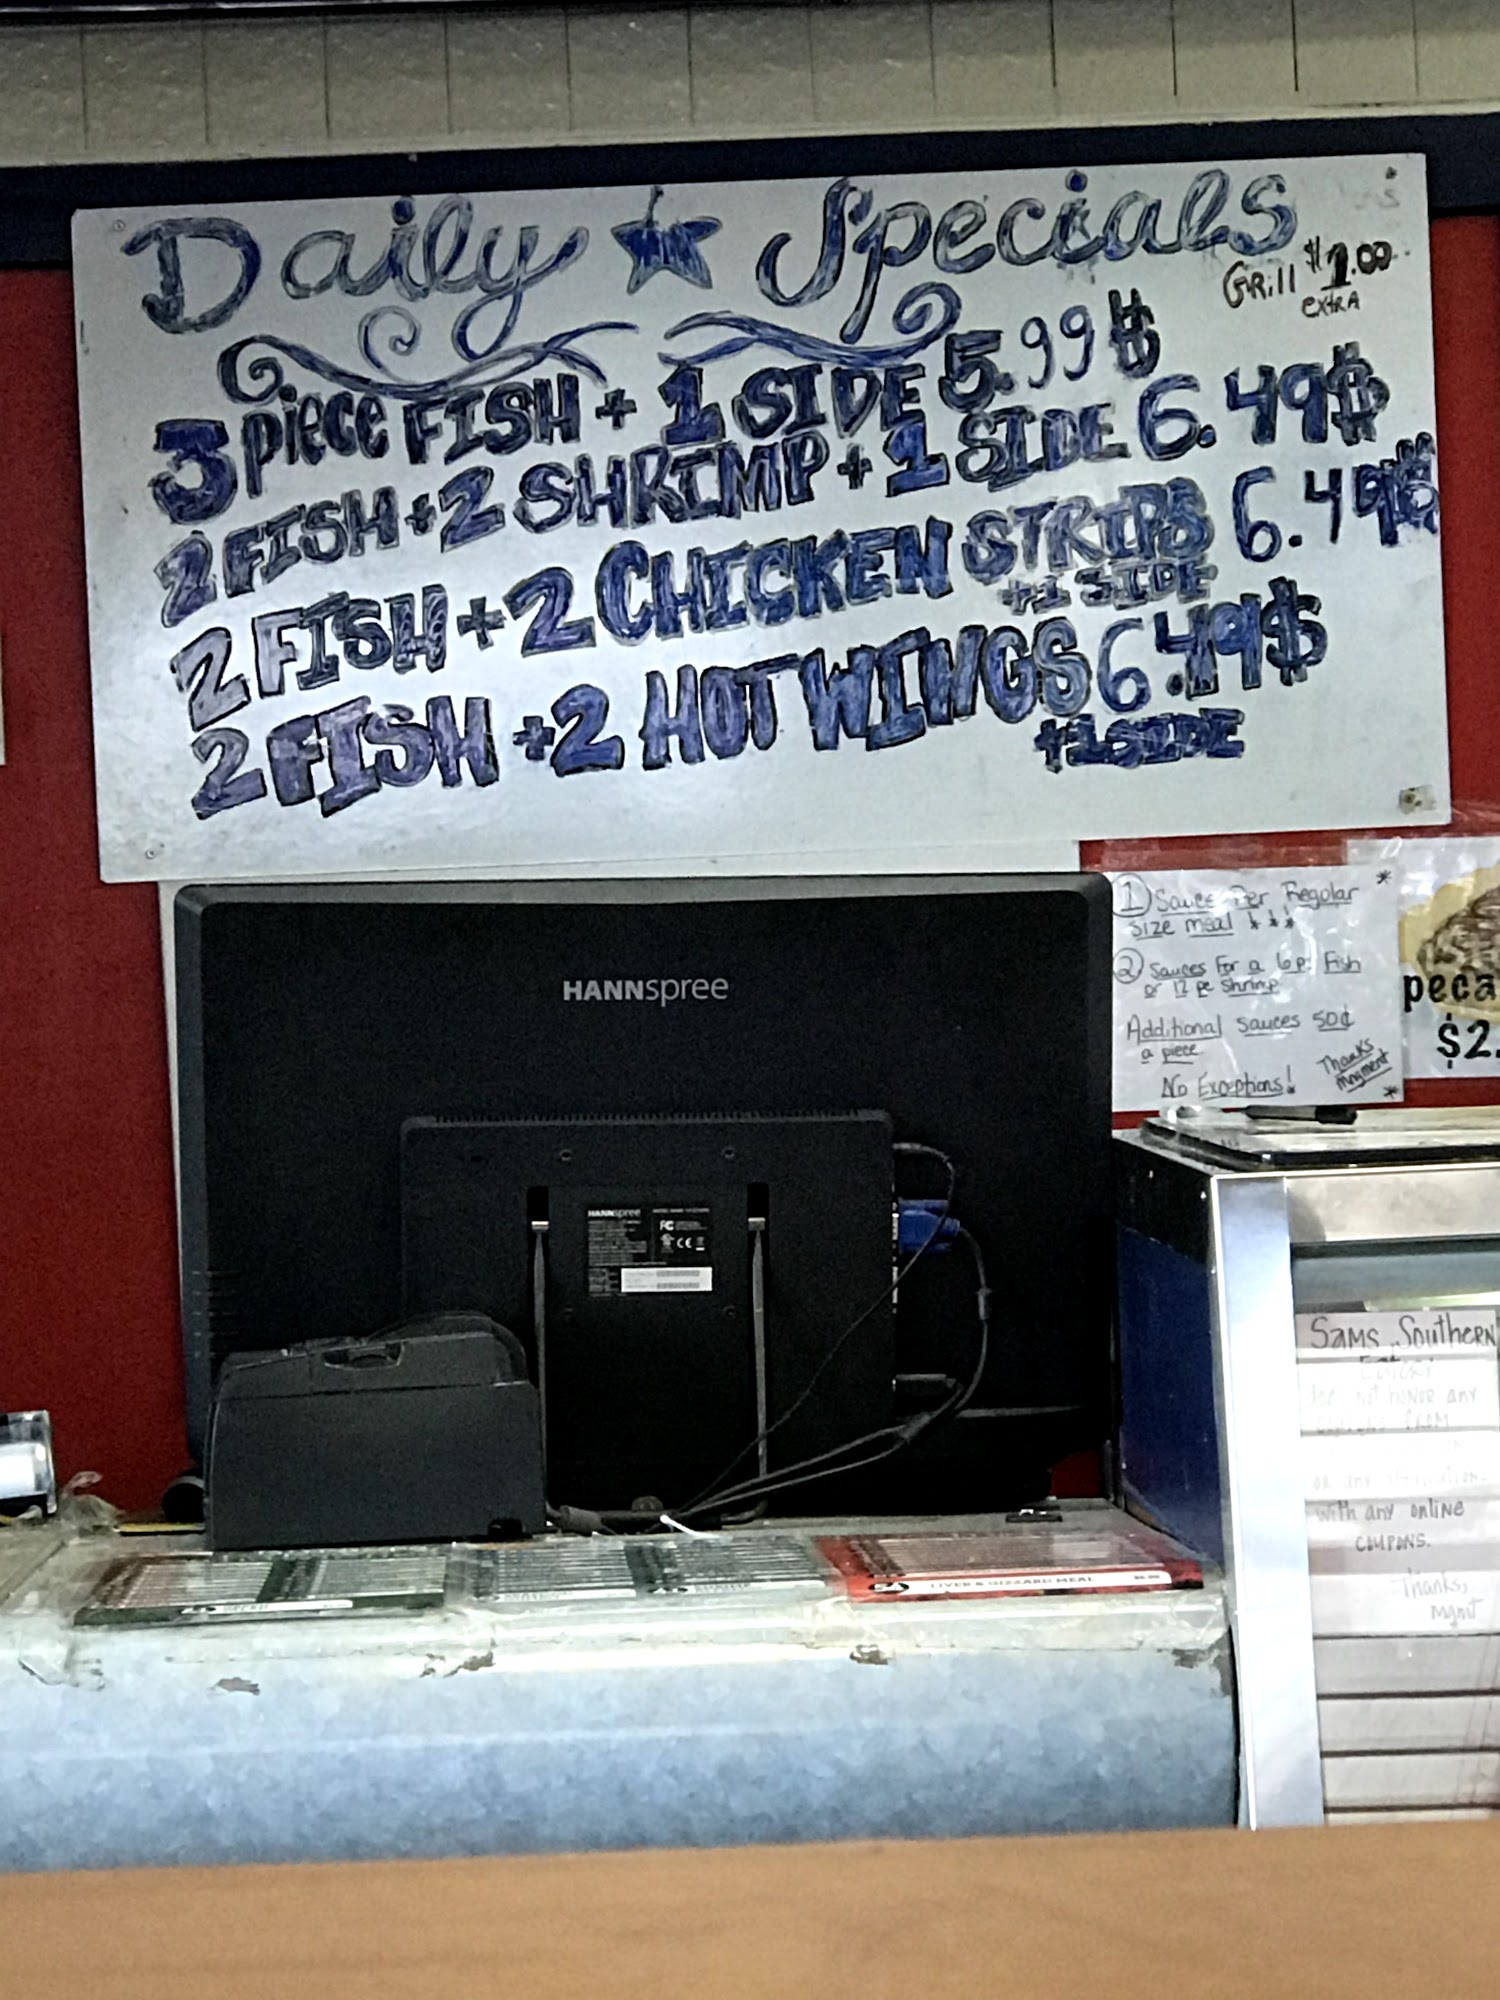 Daily Specials
Grill $1.00
extra
3 piece FISH + 1 SIDE 5.99$
2 FISH + 2 SHRIMP + 1 SIDE 6.49$
2 FISH + 2 CHICKEN STRIPS 6.49$
+1 SIDE
2 FISH + 2 HOT WINGS 6.49$
+1 SIDE
HANNspree
1 Sauce Per Regular
size meal
2 Sauces For a 6 pc Fish
or 12 pc Shrimp
Additional sauces 50¢
a piece
No Exceptions!
Thanks
mngment
peca
$2.
HANNspree
FC CE
LIVER & GIZZARD MEAL
Sams Southern
Eatery
not honor any
from
or any
with any online
coupons.
Thanks,
mgmt